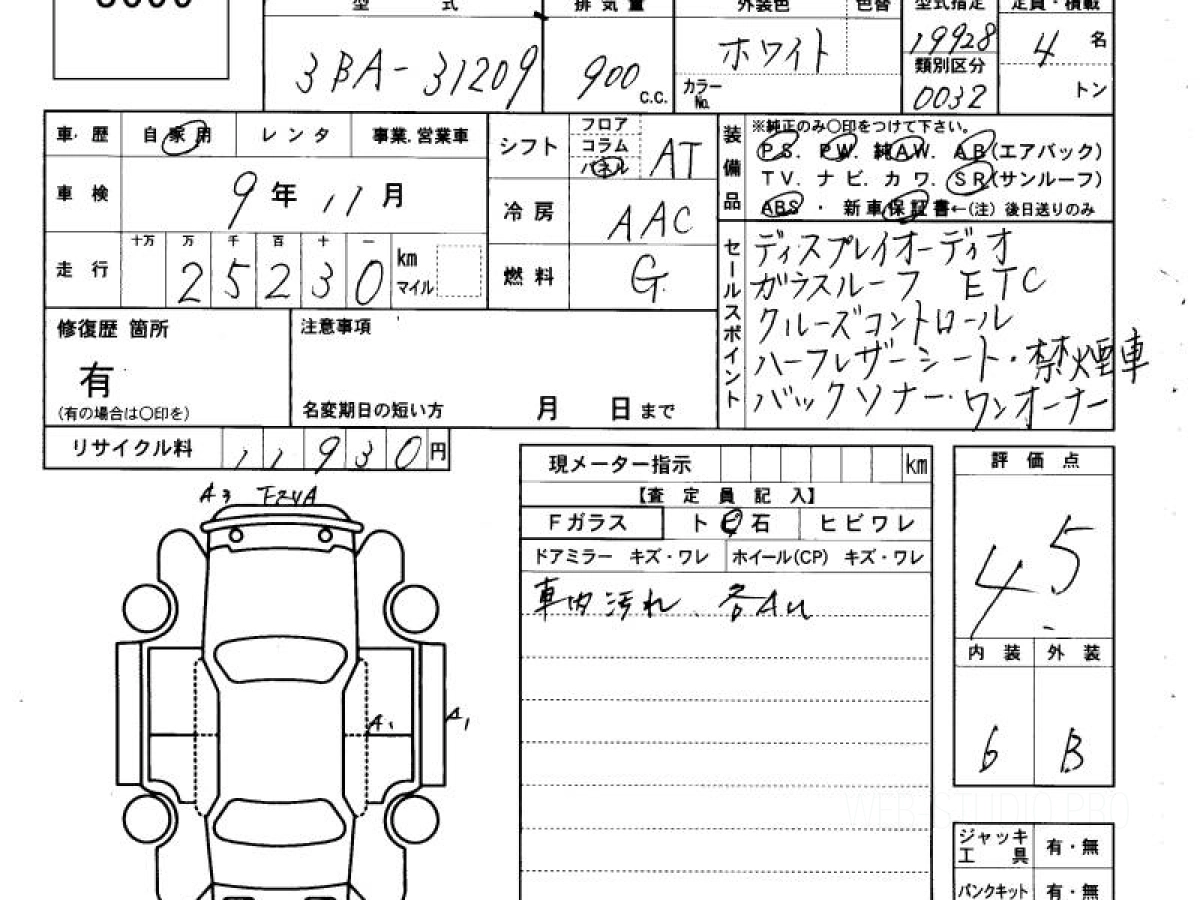 型 式 排 気 量 外装色 色替 型式指定 定員・積載
3BA-31209 900 c.c. ホワイト 19928 4 名
カラーNo. 類別区分 トン
0032
車. 歴 自 家 用 レ ン タ 事業. 営業車
車 検 9 年 11 月
走 行 十万 万 千 百 十 一
2 5 2 3 0 km
マイル
シフト フロア コラム パネル AT
冷 房 AAC
燃 料 G.
装備品 ※純正のみ〇印をつけて下さい。
PS. PW. 純AW. AB(エアバック)
TV. ナ ビ. カ ワ. SR(サンルーフ)
ABS ・ 新 車 保 証 書←(注) 後日送りのみ
セールスポイント
ディスプレイオーディオ
ガラスルーフ ETC
クルーズコントロール
ハーフレザーシート・禁煙車
バックソナー・ワンオーナー
修復歴 箇所
有
(有の場合は〇印を)
注意事項
名変期日の短い方 月 日 まで
リサイクル料 1 1 9 3 0 円
現メーター指示 km
【査 定 員 記 入】
Fガラス ト ビ 石 ヒ ビ ワ レ
ドアミラー キズ・ワレ ホイール(CP) キズ・ワレ
車内汚れ、各AU
評 価 点
4.5
内 装 外 装
6 B
ジャッキ
工 具 有・無
パンクキット 有・無
A3
A1 A1
WEB STUDIO PRO